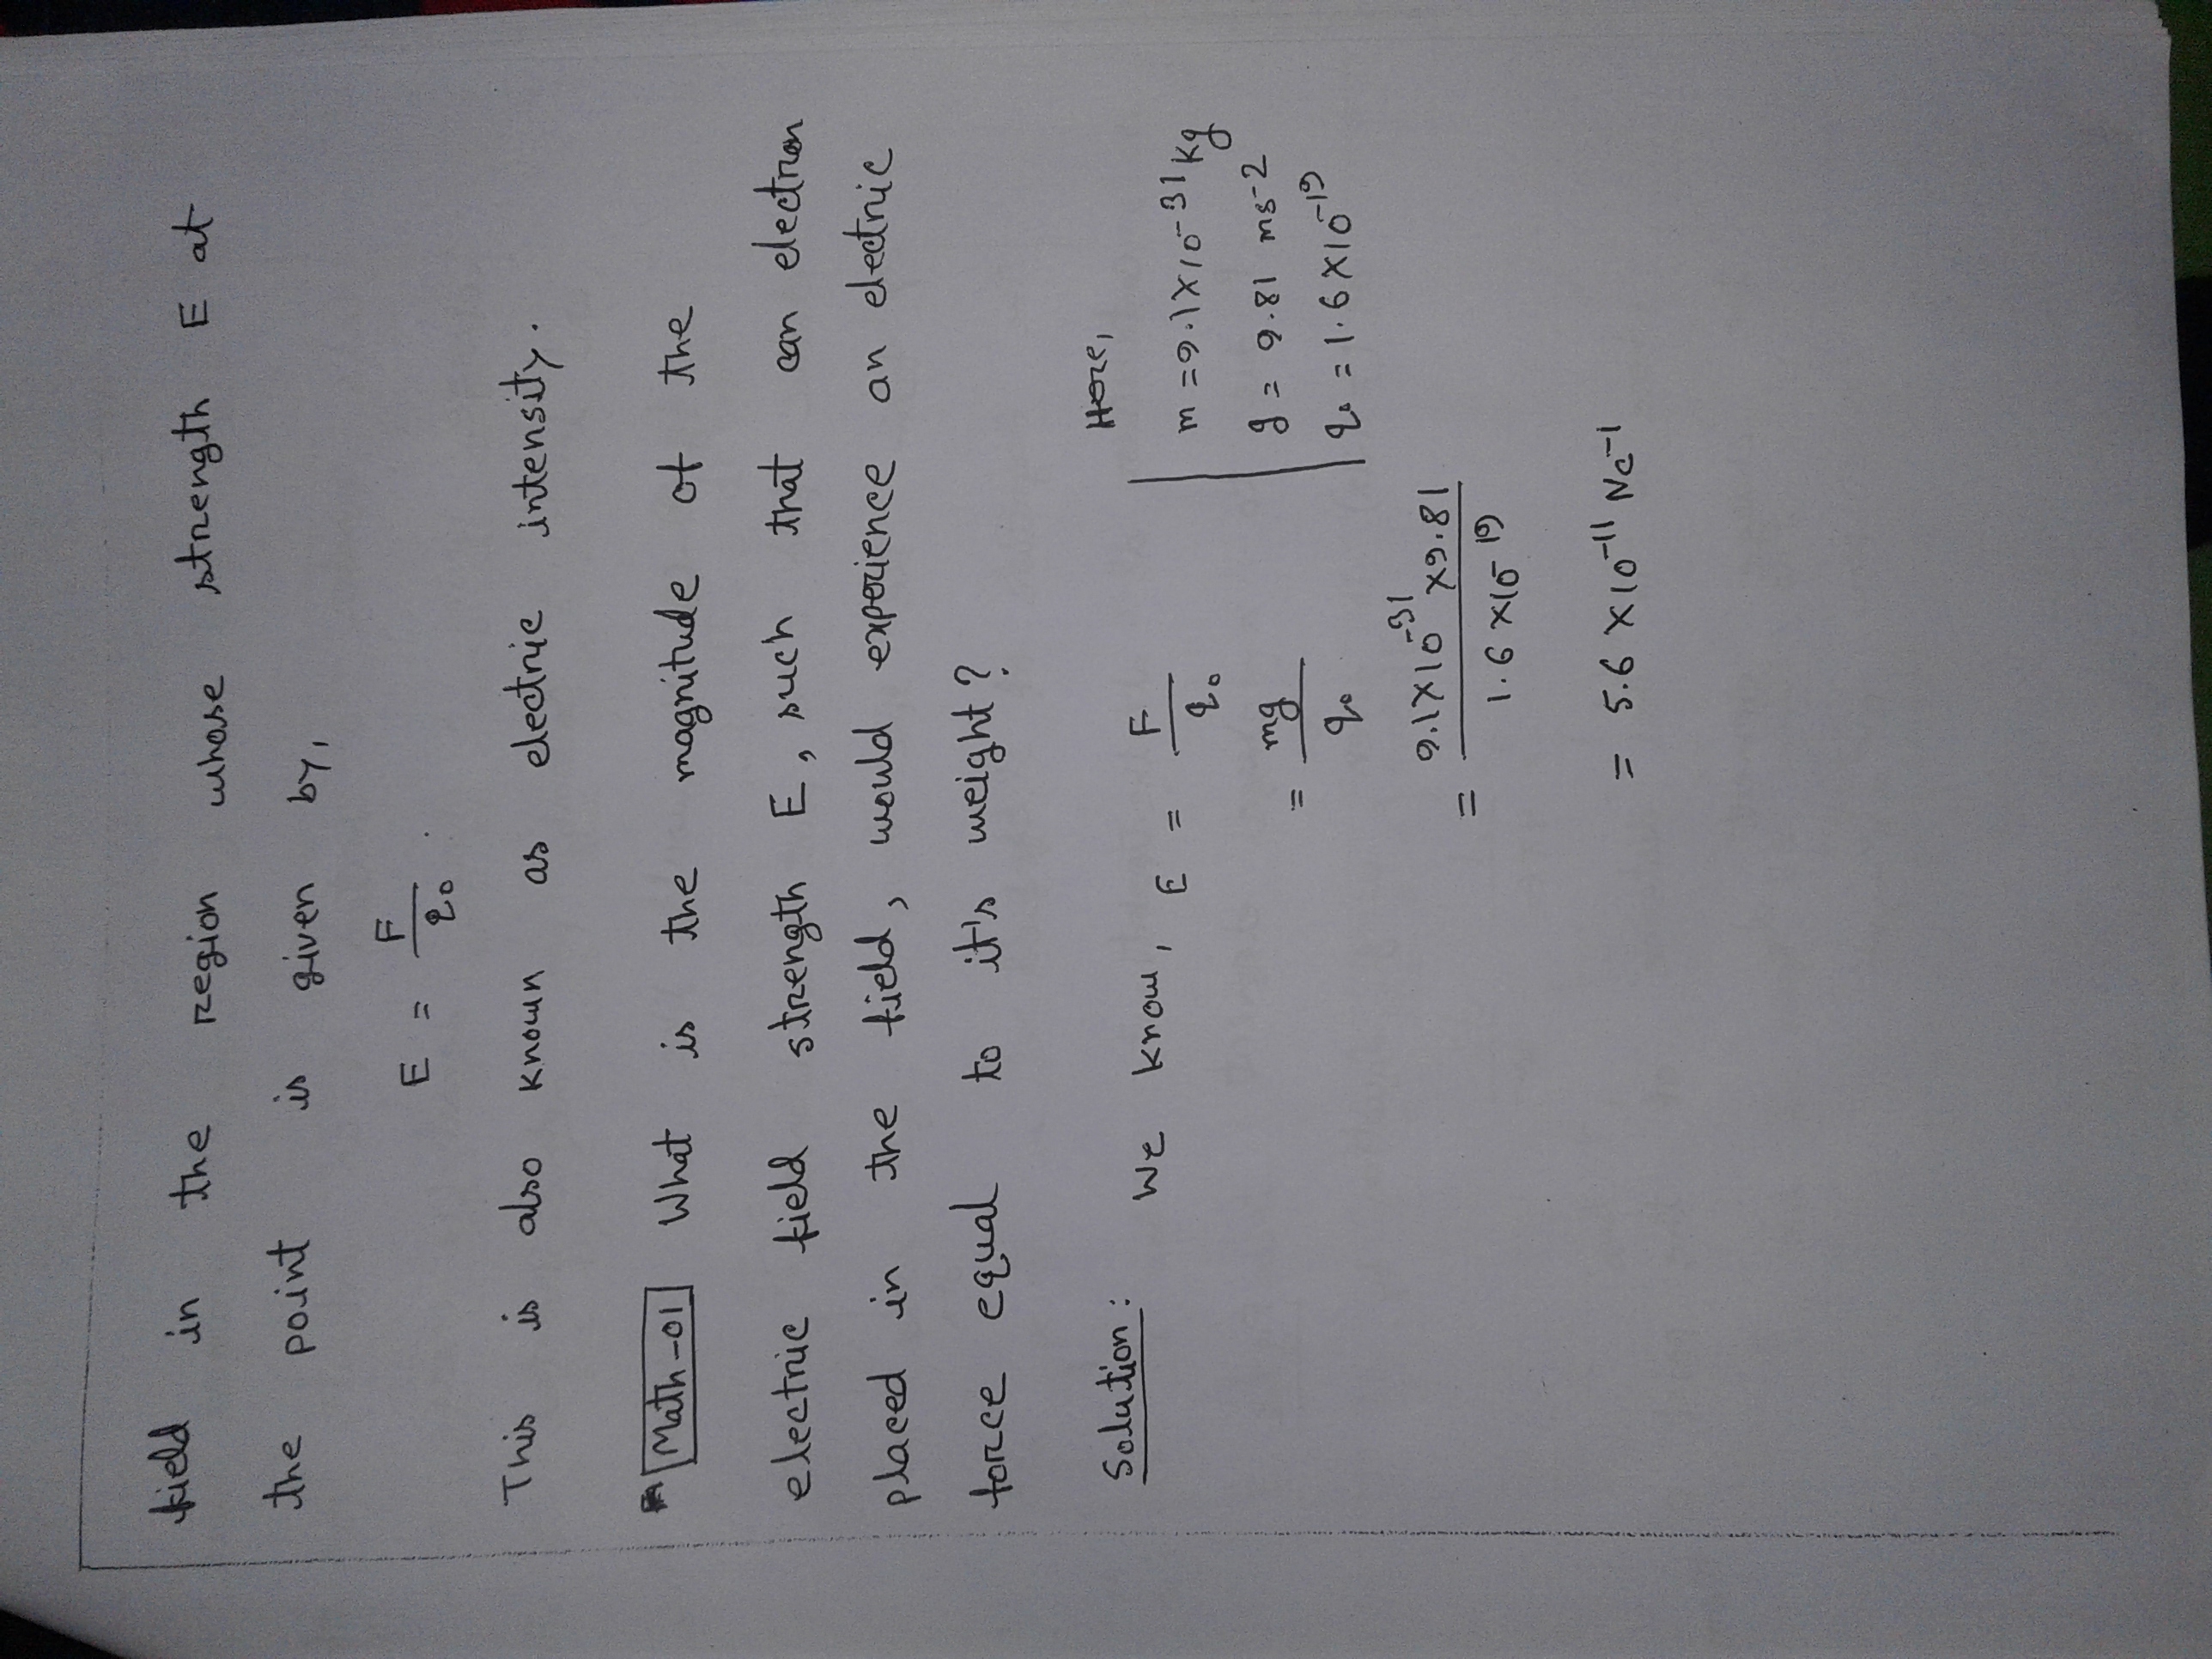 field in the region whose strength E at
the point is given by,
E = F / q₀ .
This is also known as electric intensity.
Math-01 What is the magnitude of the
electric field strength E, such that can electron
placed in the field, would experience an electric
force equal to it's weight?
Solution: We know, E = F / q₀
= mg / q₀
= 9.1×10⁻³¹ ×9.81 / 1.6 ×10⁻¹⁹
= 5.6 ×10⁻¹¹ Nc⁻¹
Here,
m = 9.1×10⁻³¹ kg
g = 9.81 ms⁻²
q₀ = 1.6 ×10⁻¹⁹